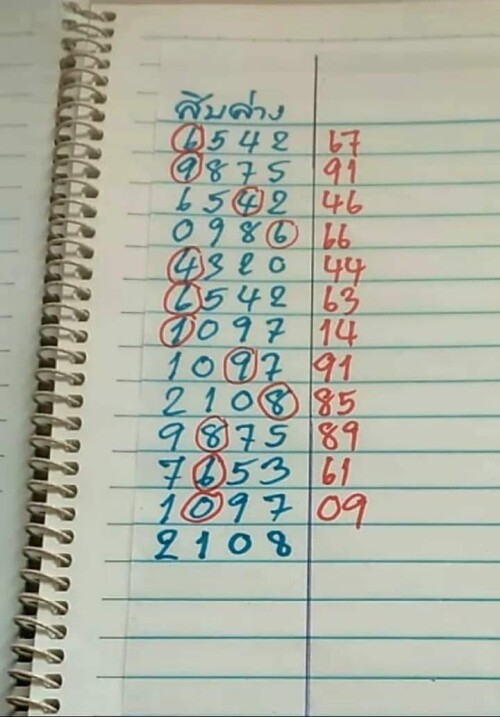 สิบล่าง
6542 67
9875 91
6542 46
0986 66
4320 44
6542 63
1097 14
1097 91
2108 85
9875 89
7653 61
1097 09
2108